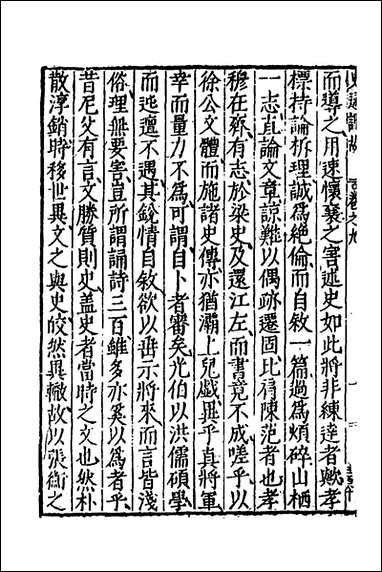 而導之用速懷襄之害述史如此將非練達者歟孝
標持論析理誠爲絕倫而自敘一篇過爲煩碎山栖
一志直論文章諒難以偶跡遷固比肩陳范者也孝
穆在齊有志於梁史及還江左而書竟不成嗟乎以
徐公文體而施諸史傳亦猶灞上兒戲異乎真將軍
幸而量力不爲可謂自卜者審矣光伯以洪儒碩學
而迍邅不遇其銳情自敘欲以垂示將來而言皆淺
俗理無要害豈所謂誦詩三百雖多亦奚以爲者乎
昔尼父有言文勝質則史蓋史者當時之文也然朴
散淳銷時移世異文之與史皎然異轍故以張衡之